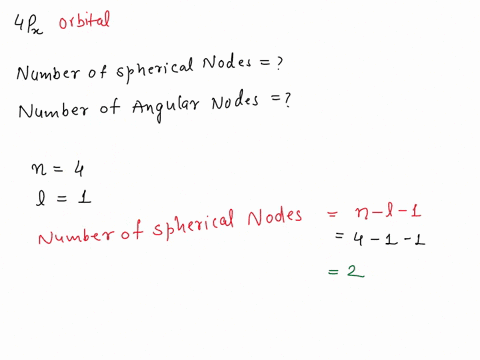 4Px orbital
Number of spherical Nodes = ?
Number of Angular Nodes = ?
n = 4
l = 1
Number of spherical Nodes = n - l - 1
= 4 - 1 - 1
= 2